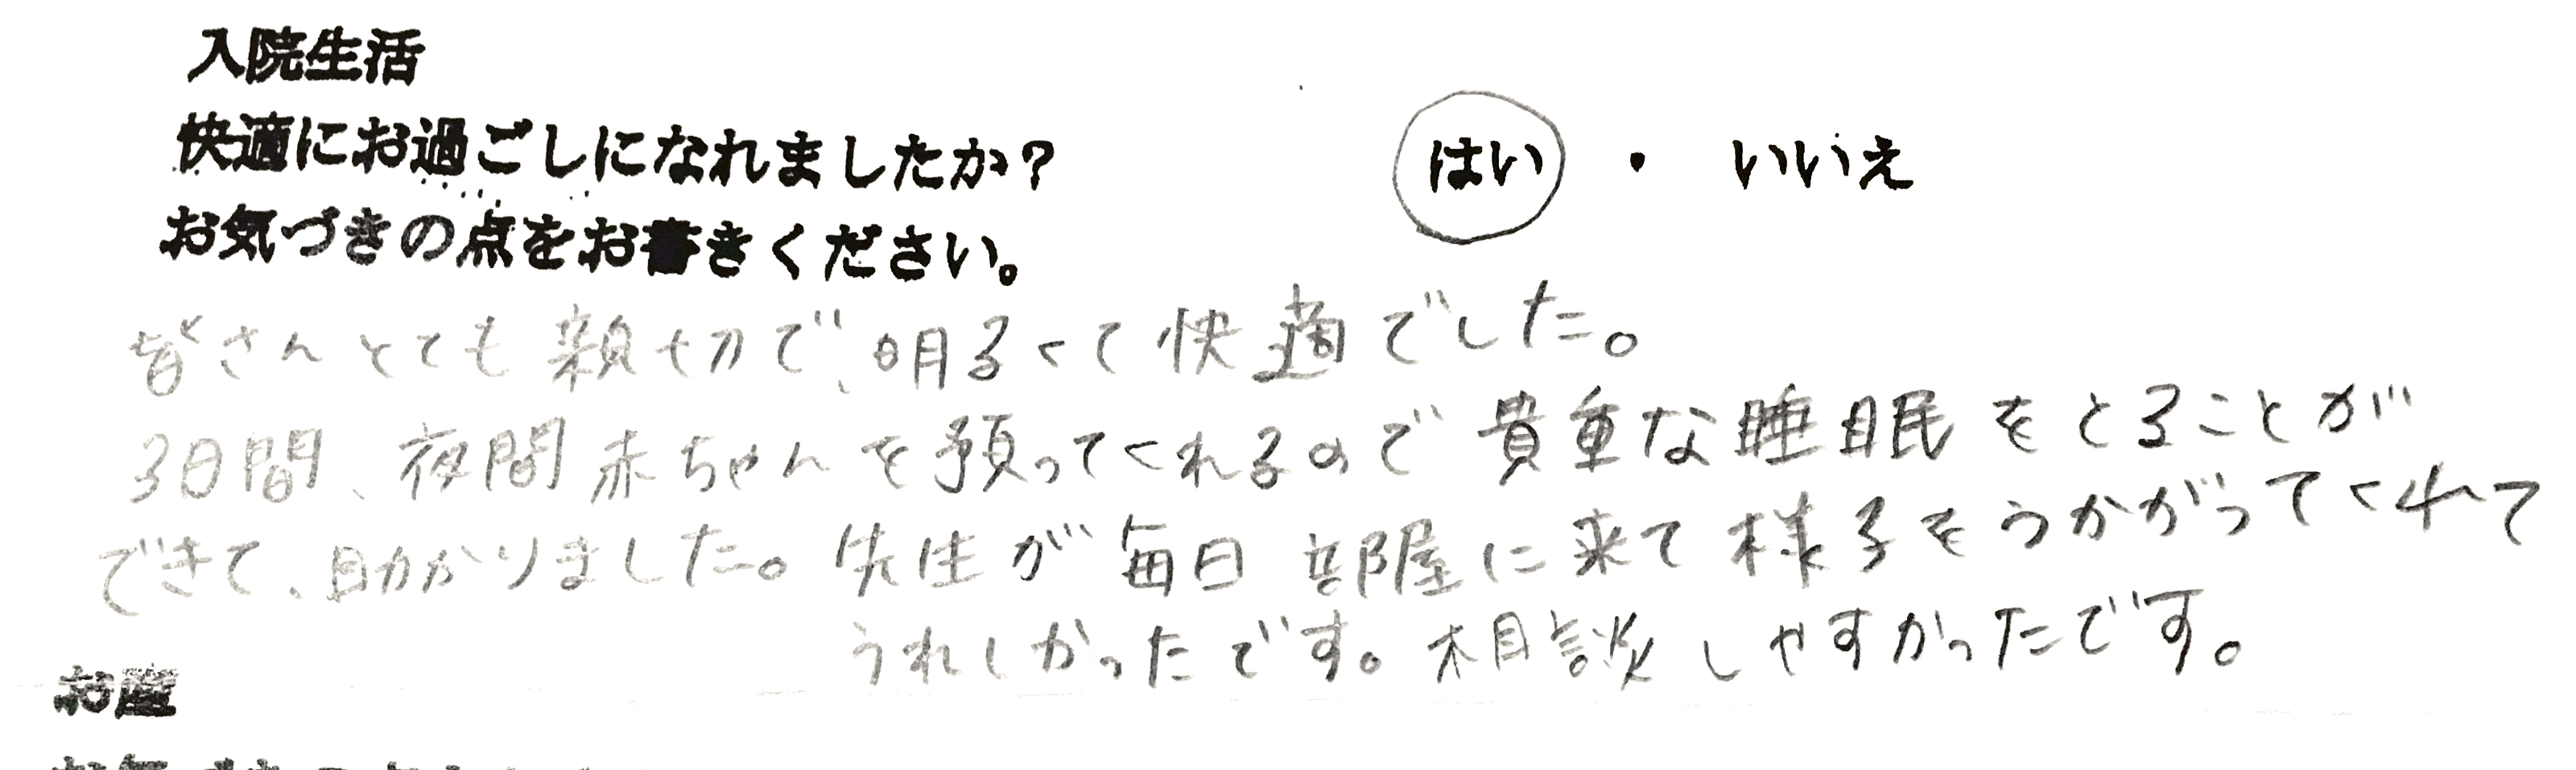 入院生活
快適にお過ごしになれましたか? はい ・ いいえ
お気づきの点をお書きください。
皆さんとても親切で、明るくて快適でした。
3日間、夜間赤ちゃんを預ってくれるので貴重な睡眠をとることが
できて、助かりました。先生が毎日部屋に来て様子をうかがってくれて
うれしかったです。相談しやすかったです。
お産